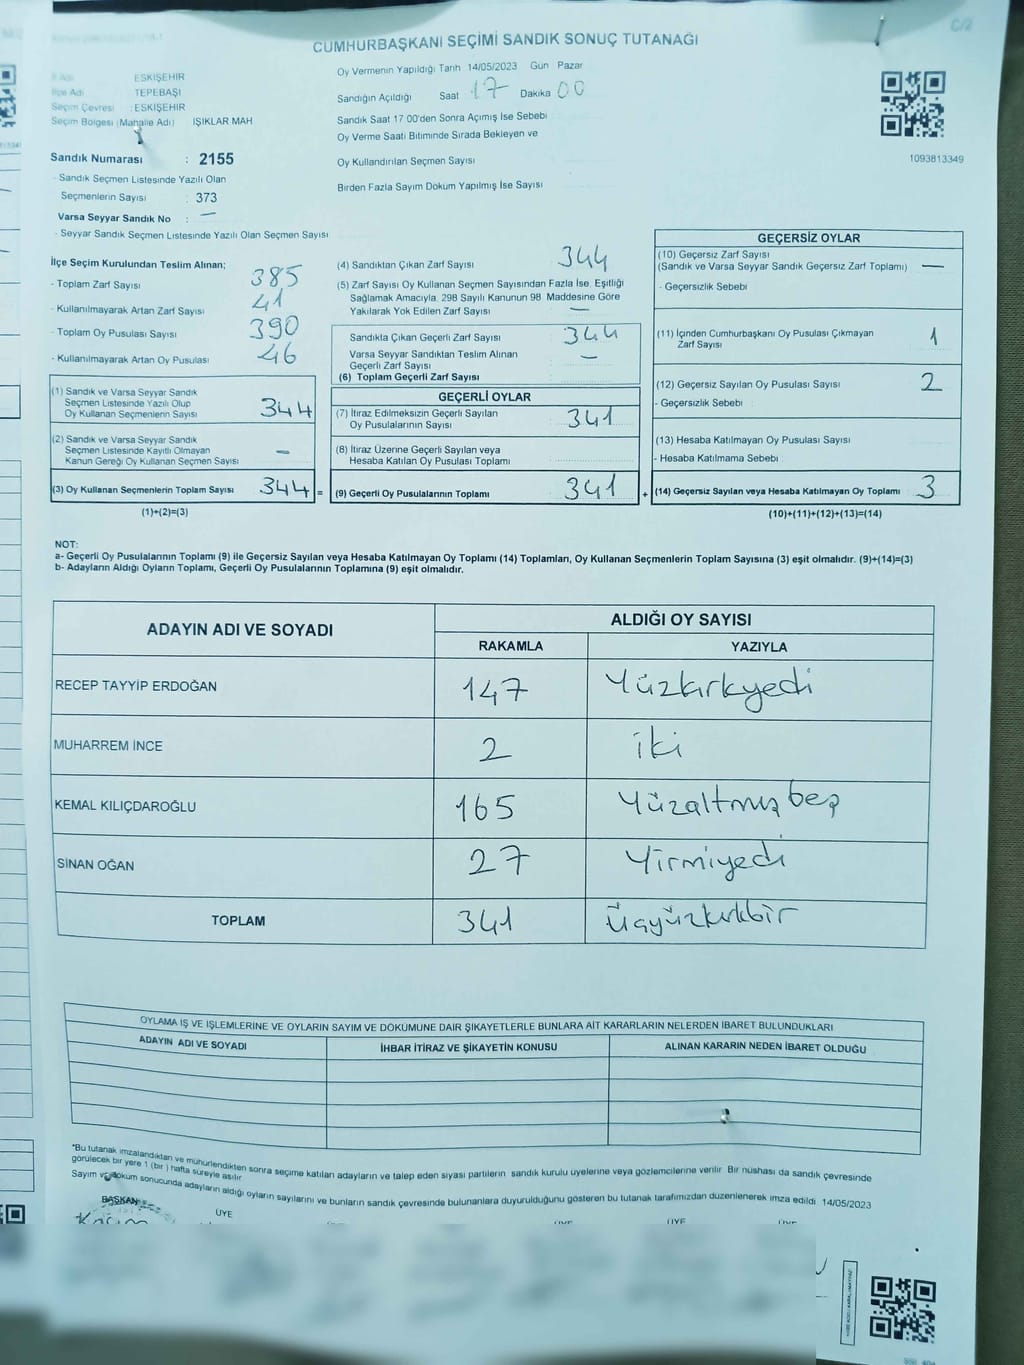 C/2
CUMHURBAŞKANI SEÇİMİ SANDIK SONUÇ TUTANAĞI
İl Adı ESKİŞEHİR
İlçe Adı TEPEBAŞI
Seçim Çevresi : ESKİŞEHİR
Seçim Bölgesi (Mahalle Adı) IŞIKLAR MAH
Sandık Numarası : 2155
- Sandık Seçmen Listesinde Yazılı Olan
Seçmenlerin Sayısı : 373
Varsa Seyyar Sandık No : —
- Seyyar Sandık Seçmen Listesinde Yazılı Olan Seçmen Sayısı
Oy Vermenin Yapıldığı Tarih 14/05/2023 Gün Pazar
Sandığın Açıldığı Saat 17 Dakika 00
Sandık Saat 17 00'den Sonra Açımış İse Sebebi
Oy Verme Saati Bitiminde Sırada Bekleyen ve
Oy Kullandırılan Seçmen Sayısı
Birden Fazla Sayım Döküm Yapılmış İse Sayısı
1093813349
İlçe Seçim Kurulundan Teslim Alınan;
- Toplam Zarf Sayısı 385
- Kullanılmayarak Artan Zarf Sayısı 41
- Toplam Oy Pusulası Sayısı 390
- Kullanılmayarak Artan Oy Pusulası 46
(1) Sandık ve Varsa Seyyar Sandık
Seçmen Listesinde Yazılı Olup
Oy Kullanan Seçmenlerin Sayısı 344
(2) Sandık ve Varsa Seyyar Sandık
Seçmen Listesinde Kayıtlı Olmayan
Kanun Gereği Oy Kullanan Seçmen Sayısı —
(3) Oy Kullanan Seçmenlerin Toplam Sayısı 344 =
(1)+(2)=(3)
(4) Sandıktan Çıkan Zarf Sayısı 344
(5) Zarf Sayısı Oy Kullanan Seçmen Sayısından Fazla İse, Eşitliği
Sağlamak Amacıyla, 298 Sayılı Kanunun 98. Maddesine Göre
Yakılarak Yok Edilen Zarf Sayısı —
Sandıkta Çıkan Geçerli Zarf Sayısı 344
Varsa Seyyar Sandıktan Teslim Alınan
Geçerli Zarf Sayısı —
(6) Toplam Geçerli Zarf Sayısı
GEÇERLİ OYLAR
(7) İtiraz Edilmeksizin Geçerli Sayılan
Oy Pusulalarının Sayısı 341
(8) İtiraz Üzerine Geçerli Sayılan veya
Hesaba Katılan Oy Pusulası Toplamı
(9) Geçerli Oy Pusulalarının Toplamı 341 +
GEÇERSİZ OYLAR
(10) Geçersiz Zarf Sayısı
(Sandık ve Varsa Seyyar Sandık Geçersiz Zarf Toplamı) —
- Geçersizlik Sebebi
(11) İçinden Cumhurbaşkanı Oy Pusulası Çıkmayan
Zarf Sayısı 1
(12) Geçersiz Sayılan Oy Pusulası Sayısı 2
- Geçersizlik Sebebi
(13) Hesaba Katılmayan Oy Pusulası Sayısı
- Hesaba Katılmama Sebebi
(14) Geçersiz Sayılan veya Hesaba Katılmayan Oy Toplamı 3
(10)+(11)+(12)+(13)=(14)
NOT:
a- Geçerli Oy Pusulalarının Toplamı (9) ile Geçersiz Sayılan veya Hesaba Katılmayan Oy Toplamı (14) Toplamları, Oy Kullanan Seçmenlerin Toplam Sayısına (3) eşit olmalıdır. (9)+(14)=(3)
b- Adayların Aldığı Oyların Toplamı, Geçerli Oy Pusulalarının Toplamına (9) eşit olmalıdır.
ADAYIN ADI VE SOYADI
ALDIĞI OY SAYISI
RAKAMLA YAZIYLA
RECEP TAYYİP ERDOĞAN 147 Yüzkırkyedi
MUHARREM İNCE 2 iki
KEMAL KILIÇDAROĞLU 165 Yüzaltmışbeş
SİNAN OĞAN 27 Yirmiyedi
TOPLAM 341 Üçyüzkırkbir
OYLAMA İŞ VE İŞLEMLERİNE VE OYLARIN SAYIM VE DÖKÜMÜNE DAİR ŞİKAYETLERLE BUNLARA AİT KARARLARIN NELERDEN İBARET BULUNDUKLARI
ADAYIN ADI VE SOYADI İHBAR İTİRAZ VE ŞİKAYETİN KONUSU ALINAN KARARIN NEDEN İBARET OLDUĞU
*Bu tutanak imzalandıktan ve mühürlendikten sonra seçime katılan adayların ve talep eden siyasi partilerin sandık kurulu üyelerine veya gözlemcilerine verilir. Bir nüshası da sandık çevresinde
görülecek bir yere 1 (bir) hafta süreyle asılır.
Sayım ve döküm sonucunda adayların aldığı oyların sayılarını ve bunların sandık çevresinde bulunanlara duyurulduğunu gösteren bu tutanak tarafımızdan düzenlenerek imza edildi. 14/05/2023
BAŞKAN ÜYE ÜYE ÜYE ÜYE